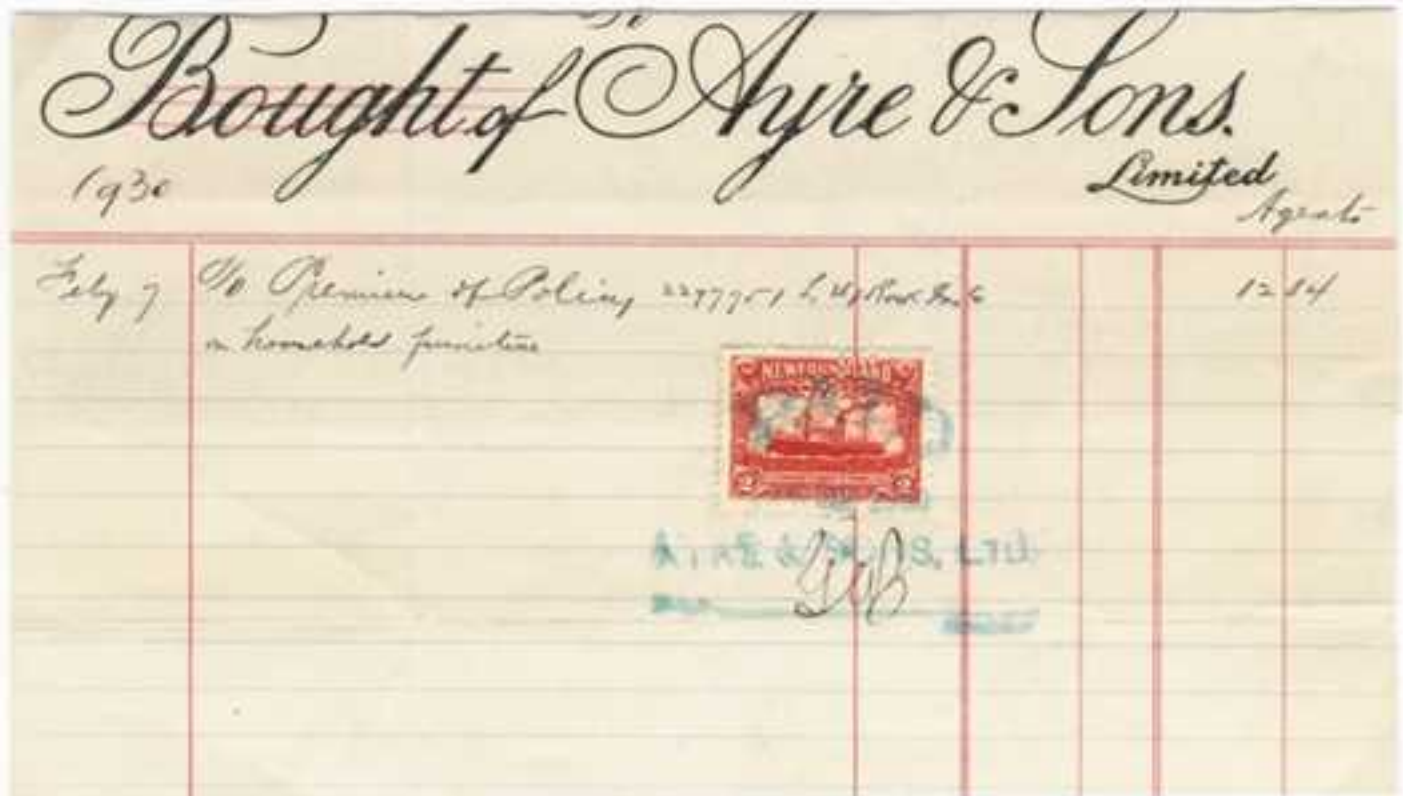 Bought of Ayre & Sons.
Limited
1930
Agents
Feby 7 To Premium of Policy 2297751 12 14
on household furniture
NEWFOUNDLAND
2 2
LTD